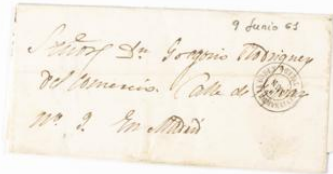 9 Junio 61
Señor Dn Gregorio Rodriguez
del Comercio. Calle de
No 9. En Madrid